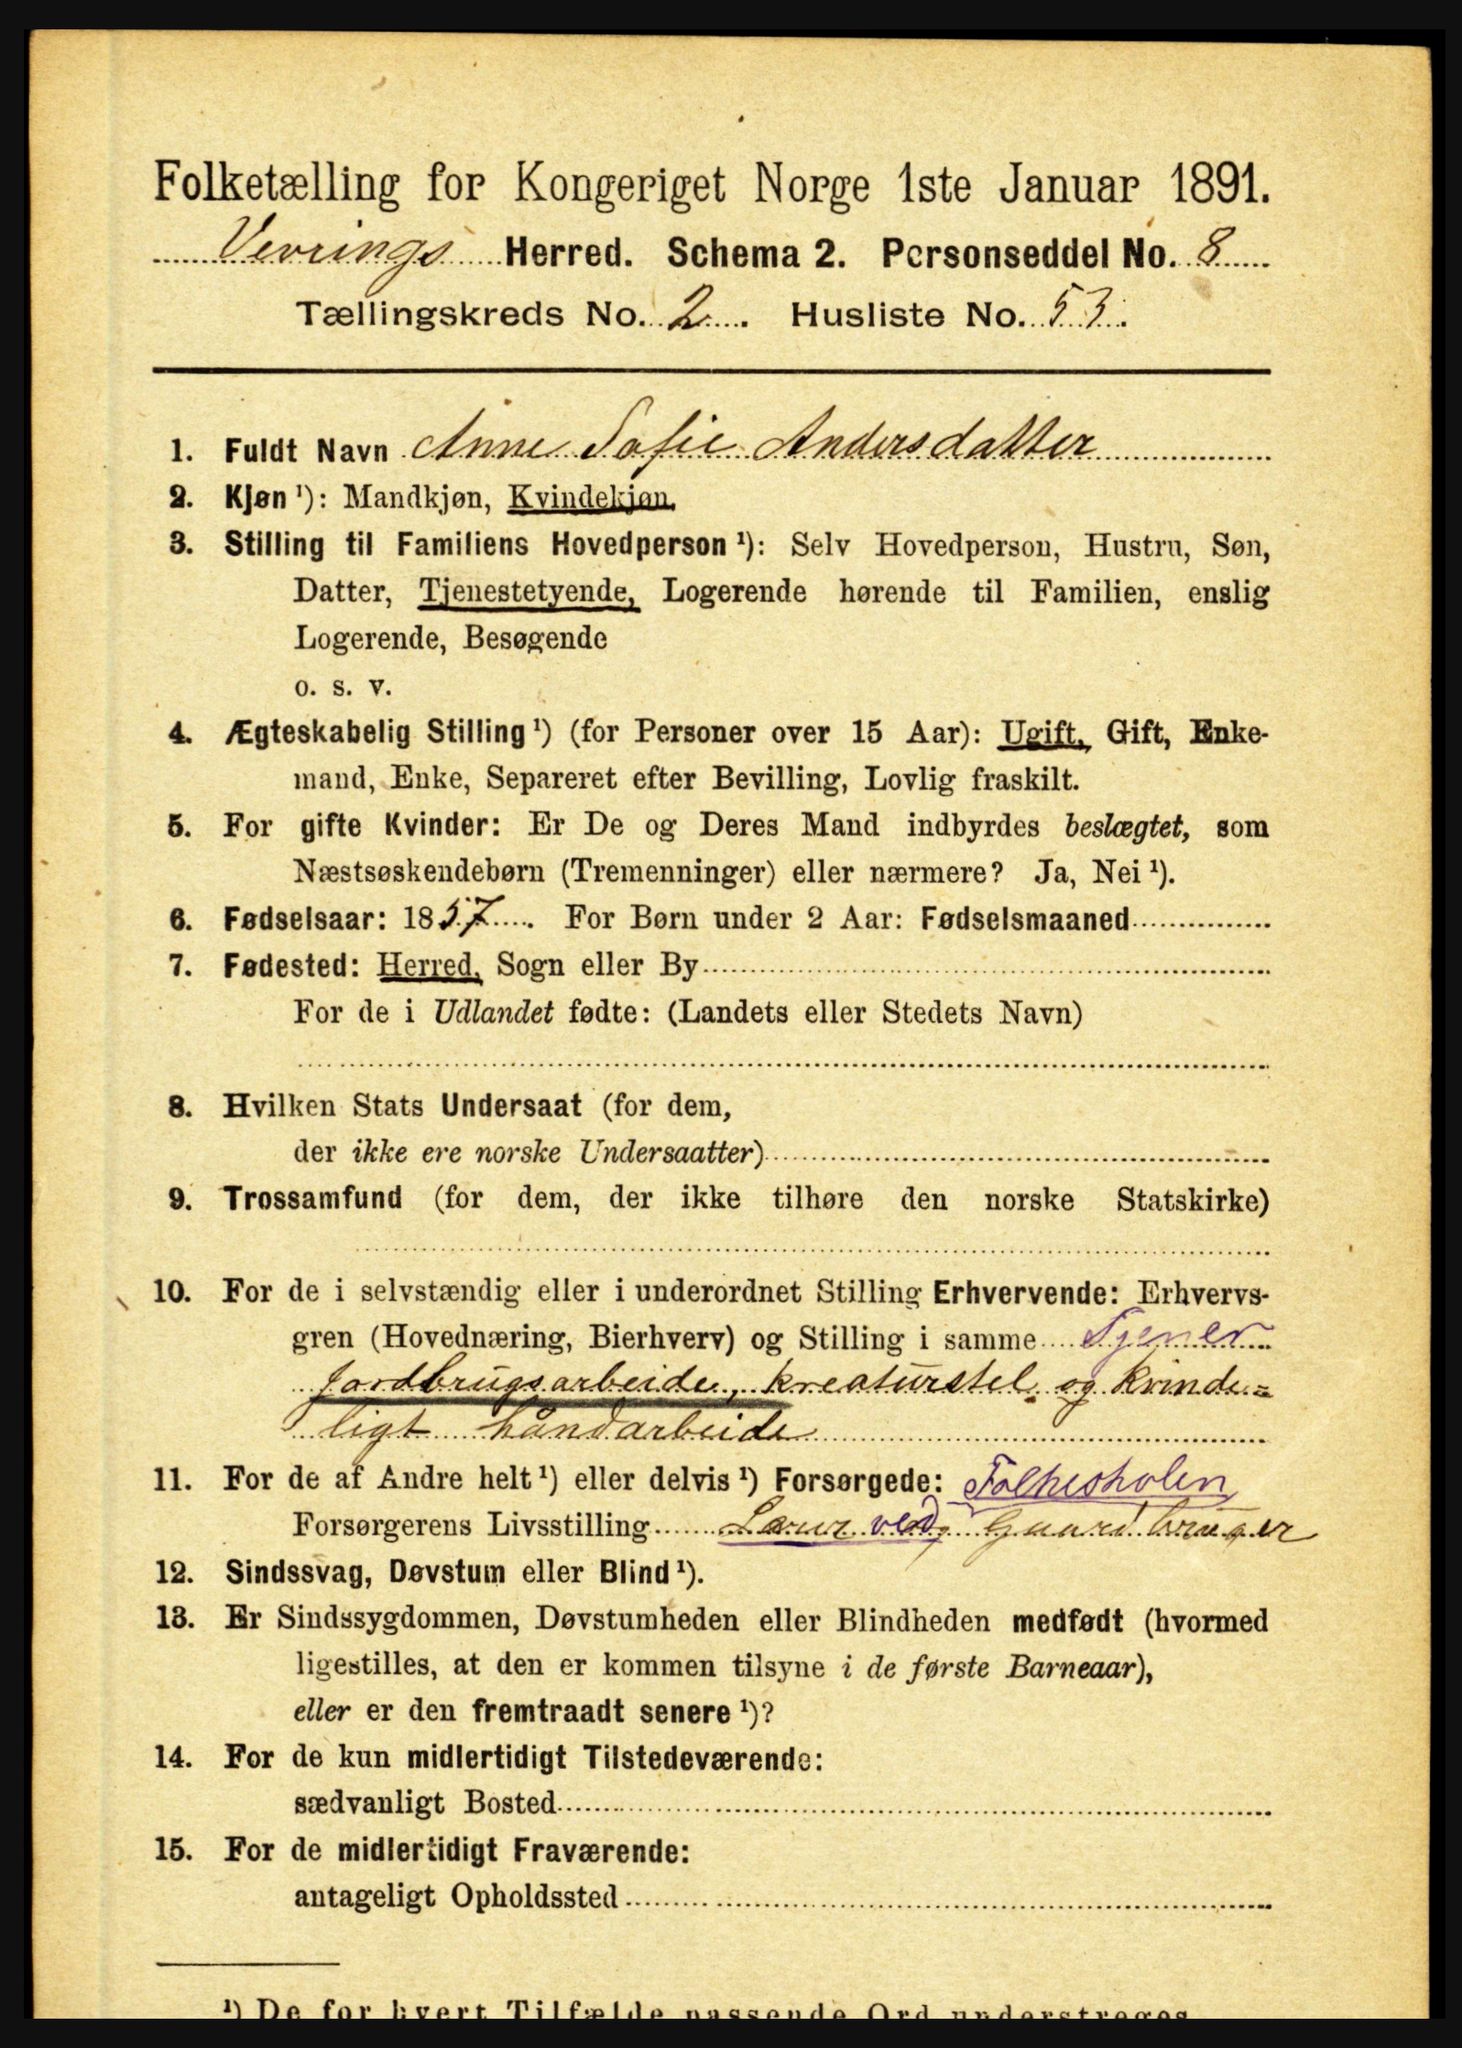 Folketælling for Kongeriget Norge 1ste Januar 1891.
Vevrings Herred. Schema 2. Personseddel No. 8
Tællingskreds No. 2. Husliste No. 53.
1. Fuldt Navn Anne Sofie Andersdatter
2. Kjøn ¹): Mandkjøn, Kvindekjøn.
3. Stilling til Familiens Hovedperson ¹): Selv Hovedperson, Hustru, Søn,
Datter, Tjenestetyende, Logerende hørende til Familien, enslig
Logerende, Besøgende
o. s. v.
4. Ægteskabelig Stilling ¹) (for Personer over 15 Aar): Ugift, Gift, Enke-
mand, Enke, Separeret efter Bevilling, Lovlig fraskilt.
5. For gifte Kvinder: Er De og Deres Mand indbyrdes beslægtet, som
Næstsøskendebørn (Tremenninger) eller nærmere? Ja, Nei ¹).
6. Fødselsaar: 1857. For Børn under 2 Aar: Fødselsmaaned
7. Fødested: Herred, Sogn eller By
For de i Udlandet fødte: (Landets eller Stedets Navn)
8. Hvilken Stats Undersaat (for dem,
der ikke ere norske Undersaatter)
9. Trossamfund (for dem, der ikke tilhøre den norske Statskirke)
10. For de i selvstændig eller i underordnet Stilling Erhvervende: Erhvervs-
gren (Hovednæring, Bierhverv) og Stilling i samme Tjener
Jordbrugsarbeide, kreaturstel og kvinde=
ligt håndarbeide
11. For de af Andre helt ¹) eller delvis ¹) Forsørgede: Folkeskolen
Forsørgerens Livsstilling Lærer ved Gaardbruger
12. Sindssvag, Døvstum eller Blind ¹).
13. Er Sindssygdommen, Døvstumheden eller Blindheden medfødt (hvormed
ligestilles, at den er kommen tilsyne i de første Barneaar),
eller er den fremtraadt senere ¹)?
14. For de kun midlertidigt Tilstedeværende:
sædvanligt Bosted
15. For de midlertidigt Fraværende:
antageligt Opholdssted
¹) De for hvert Tilfælde passende Ord understreges